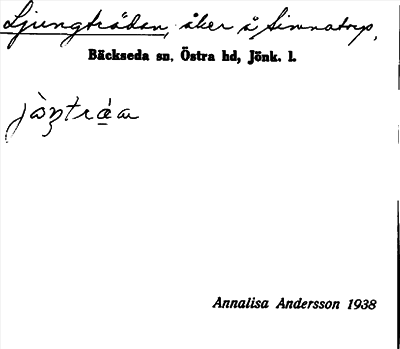 Ljungträdan, åker å Simnatorp,
Bäckseda sn, Östra hd, Jönk. l.
Annalisa Andersson 1938